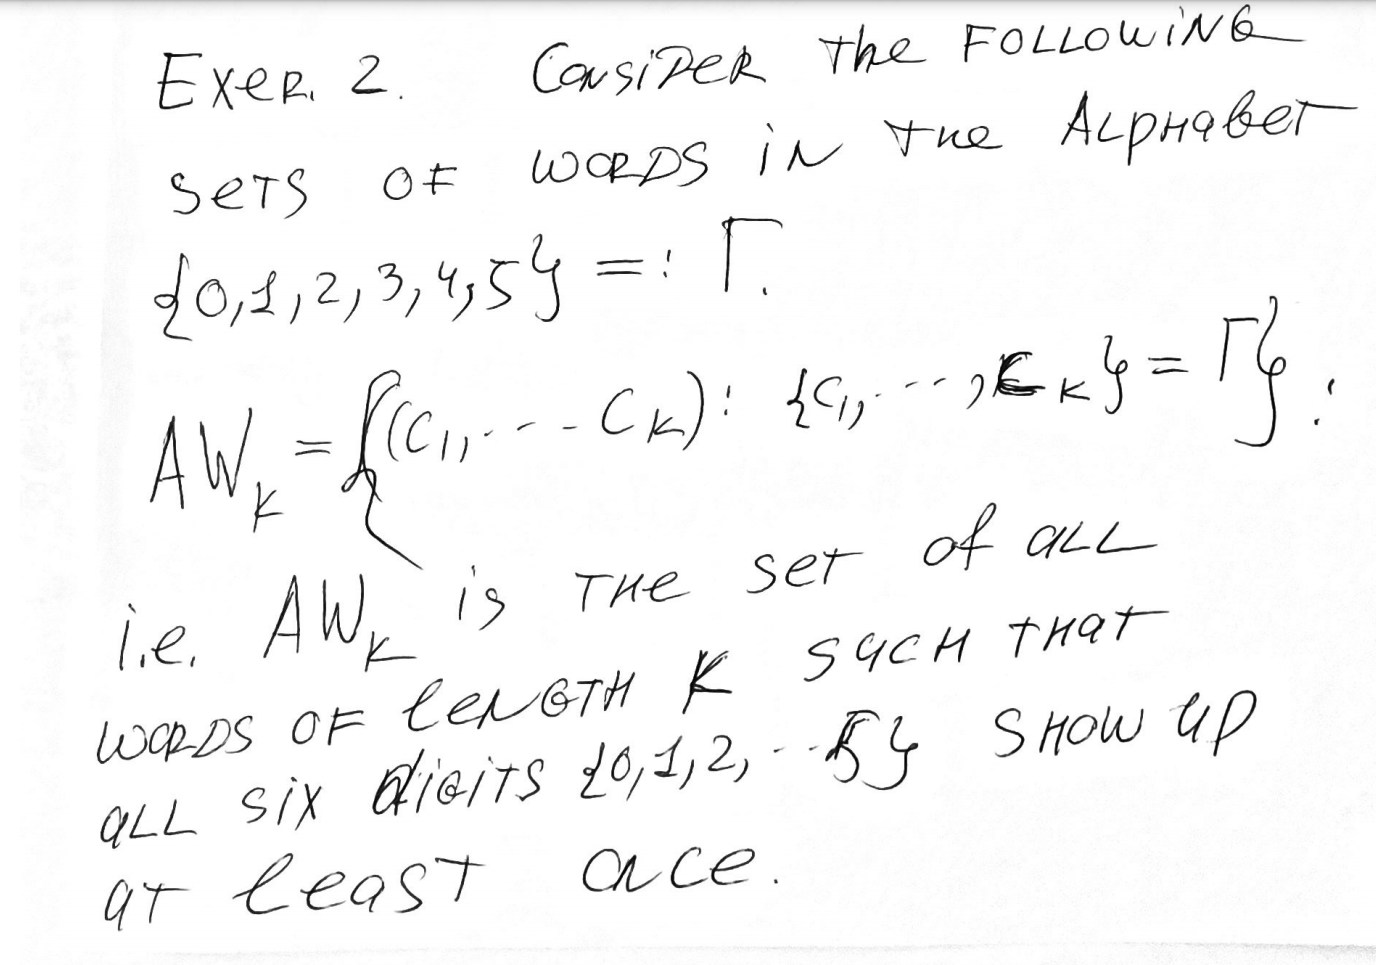 Exer. 2. Consider the FOLLOWING
sets of words in the Alphabet
{0,1,2,3,4,5} =: Γ.
AW_K = {(C_1, ... C_K): {C_1, ..., C_K} = Γ}.
i.e. AW_K is the set of all
words of length K such that
all six digits {0,1,2,...5} show up
at least once.